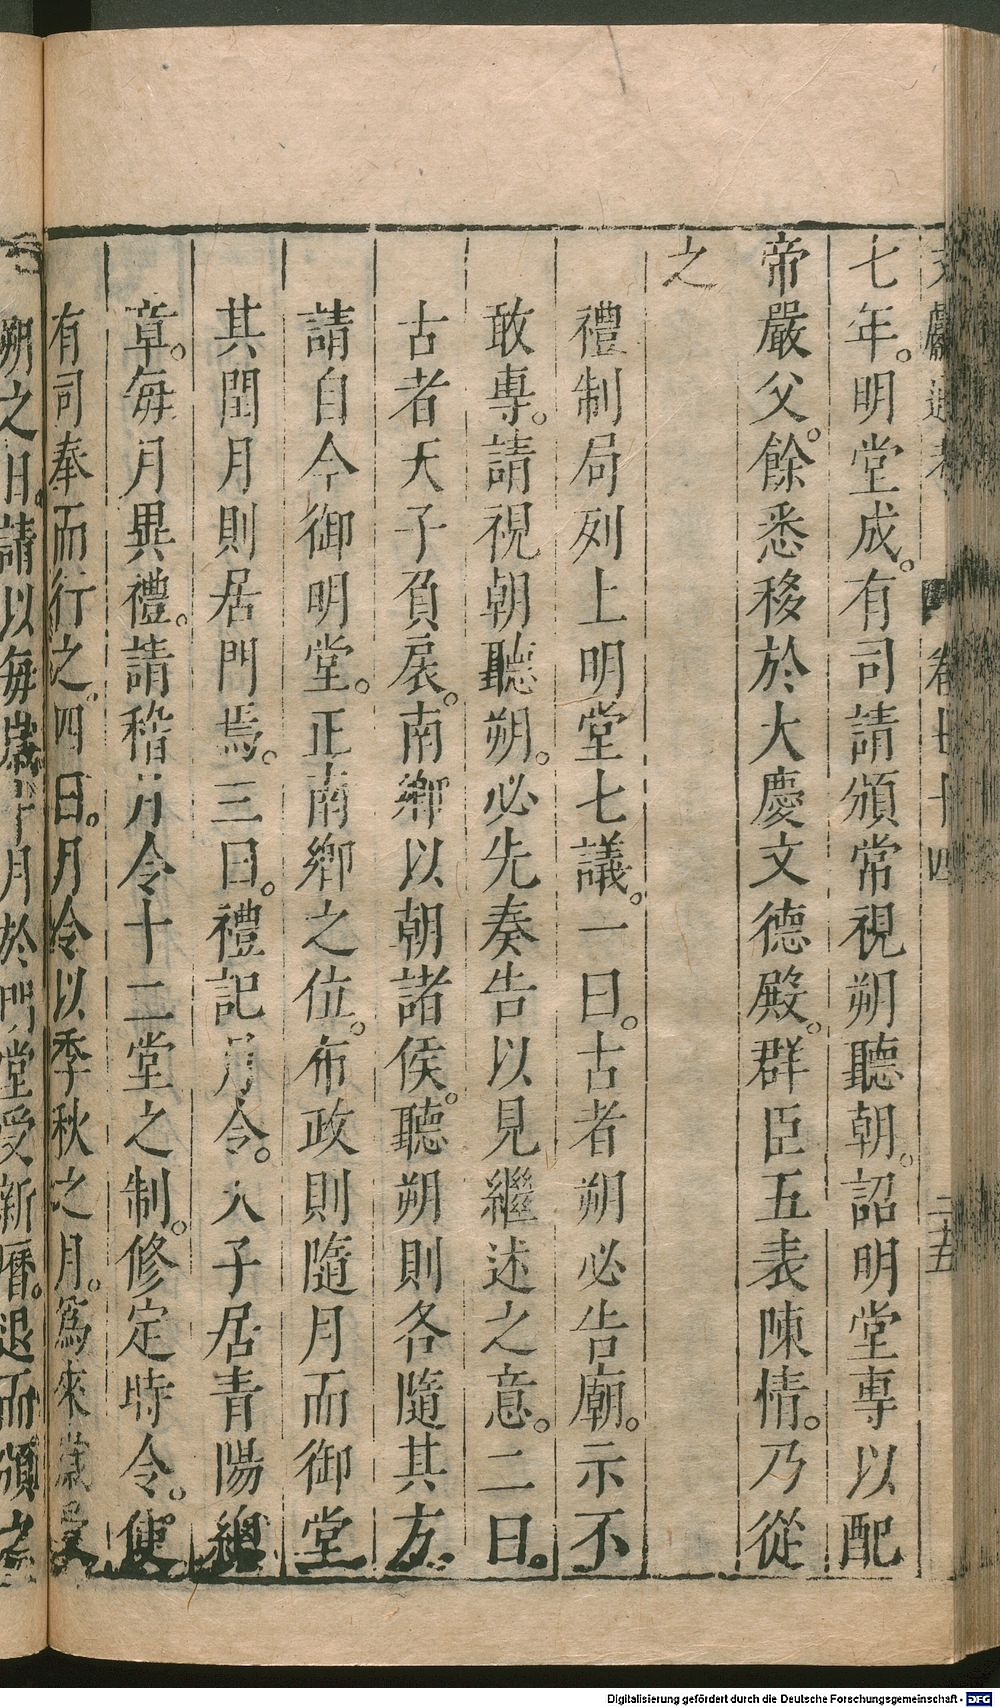 七年。明堂成。有司請頒常視朔聽朝。詔明堂專以配
帝嚴父。餘悉移於大慶文德殿。群臣五表陳情。乃從
之
禮制局列上明堂七議。一曰。古者朔必告廟。示不
敢專。請視朝聽朔。必先奏告以見繼述之意。二曰。
古者天子負扆。南鄉以朝諸侯。聽朔則各隨其方。
請自今御明堂。正南鄉之位。布政則隨月而御堂
其閏月則居門焉。三曰。禮記月令。天子居青陽總
章。每月異禮。請稽月令十二堂之制。修定時令。使
有司奉而行之。四曰。月令以季秋之月。爲來歲受
朔之日。請以每歲十月於門堂受新曆。退而頒之
文獻通考 卷七十四 二十五
Digitalisierung gefördert durch die Deutsche Forschungsgemeinschaft - DFG